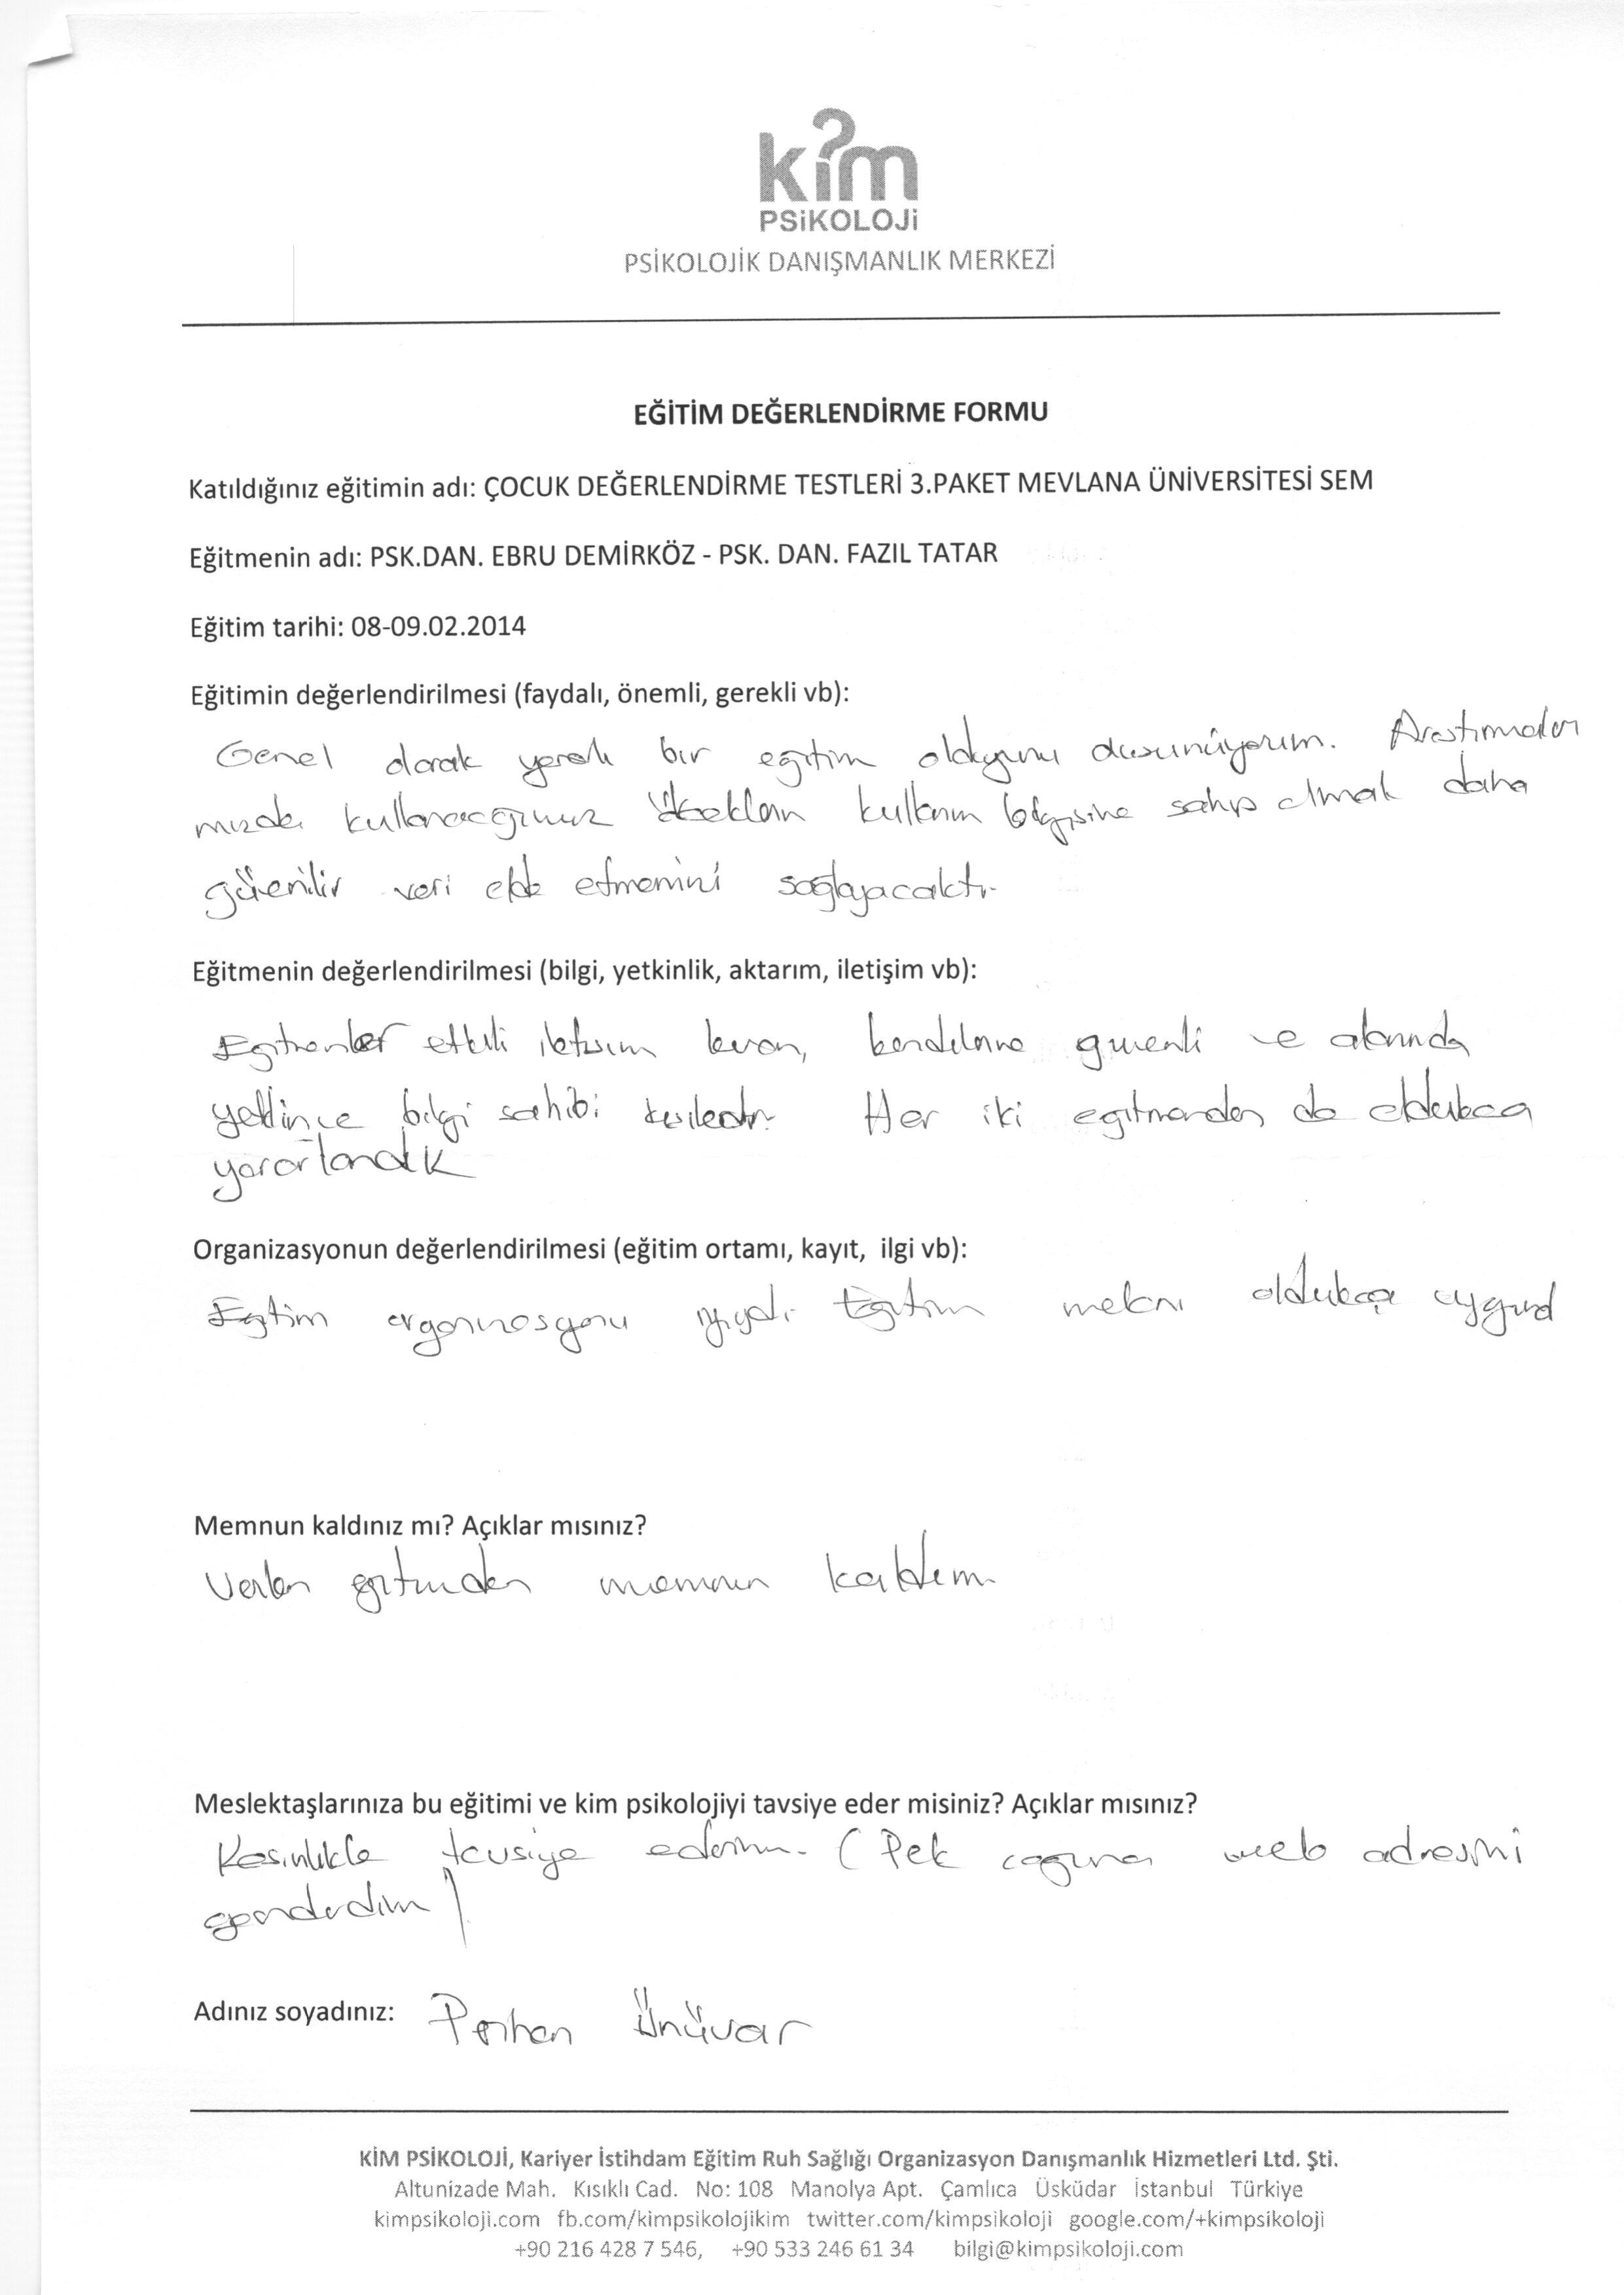 kim
PSiKOLOJi
PSİKOLOJİK DANIŞMANLIK MERKEZİ
EĞİTİM DEĞERLENDİRME FORMU
Katıldığınız eğitimin adı: ÇOCUK DEĞERLENDİRME TESTLERİ 3.PAKET MEVLANA ÜNİVERSİTESİ SEM
Eğitmenin adı: PSK.DAN. EBRU DEMİRKÖZ - PSK. DAN. FAZIL TATAR
Eğitim tarihi: 08-09.02.2014
Eğitimin değerlendirilmesi (faydalı, önemli, gerekli vb):
Genel olarak yararlı bir eğitim olduğunu düşünüyorum. Araştırmaları
mızda kullanacağımız ölçeklerin kullanım bilgisine sahip olmak daha
güvenilir veri elde etmemizi sağlayacaktır.
Eğitmenin değerlendirilmesi (bilgi, yetkinlik, aktarım, iletişim vb):
Eğitmenler etkili iletişim kuran, kendilerine güvenli ve alanında
yetkince bilgi sahibi kişilerdir. Her iki eğitmenden de oldukça
yararlandık
Organizasyonun değerlendirilmesi (eğitim ortamı, kayıt, ilgi vb):
Eğitim organizasyonu iyiydi. Eğitim mekanı oldukça uygund
Memnun kaldınız mı? Açıklar mısınız?
Verilen eğitimden memnun kaldım.
Meslektaşlarınıza bu eğitimi ve kim psikolojiyi tavsiye eder misiniz? Açıklar mısınız?
Kesinlikle tavsiye ederim. (Pek çoğuna web adresini
gönderdim)
Adınız soyadınız: Perihan Ünüvar
KİM PSİKOLOJİ, Kariyer İstihdam Eğitim Ruh Sağlığı Organizasyon Danışmanlık Hizmetleri Ltd. Şti.
Altunizade Mah. Kısıklı Cad. No: 108 Manolya Apt. Çamlıca Üsküdar İstanbul Türkiye
kimpsikoloji.com fb.com/kimpsikolojikim twitter.com/kimpsikoloji google.com/+kimpsikoloji
+90 216 428 7 546, +90 533 246 61 34 bilgi@kimpsikoloji.com